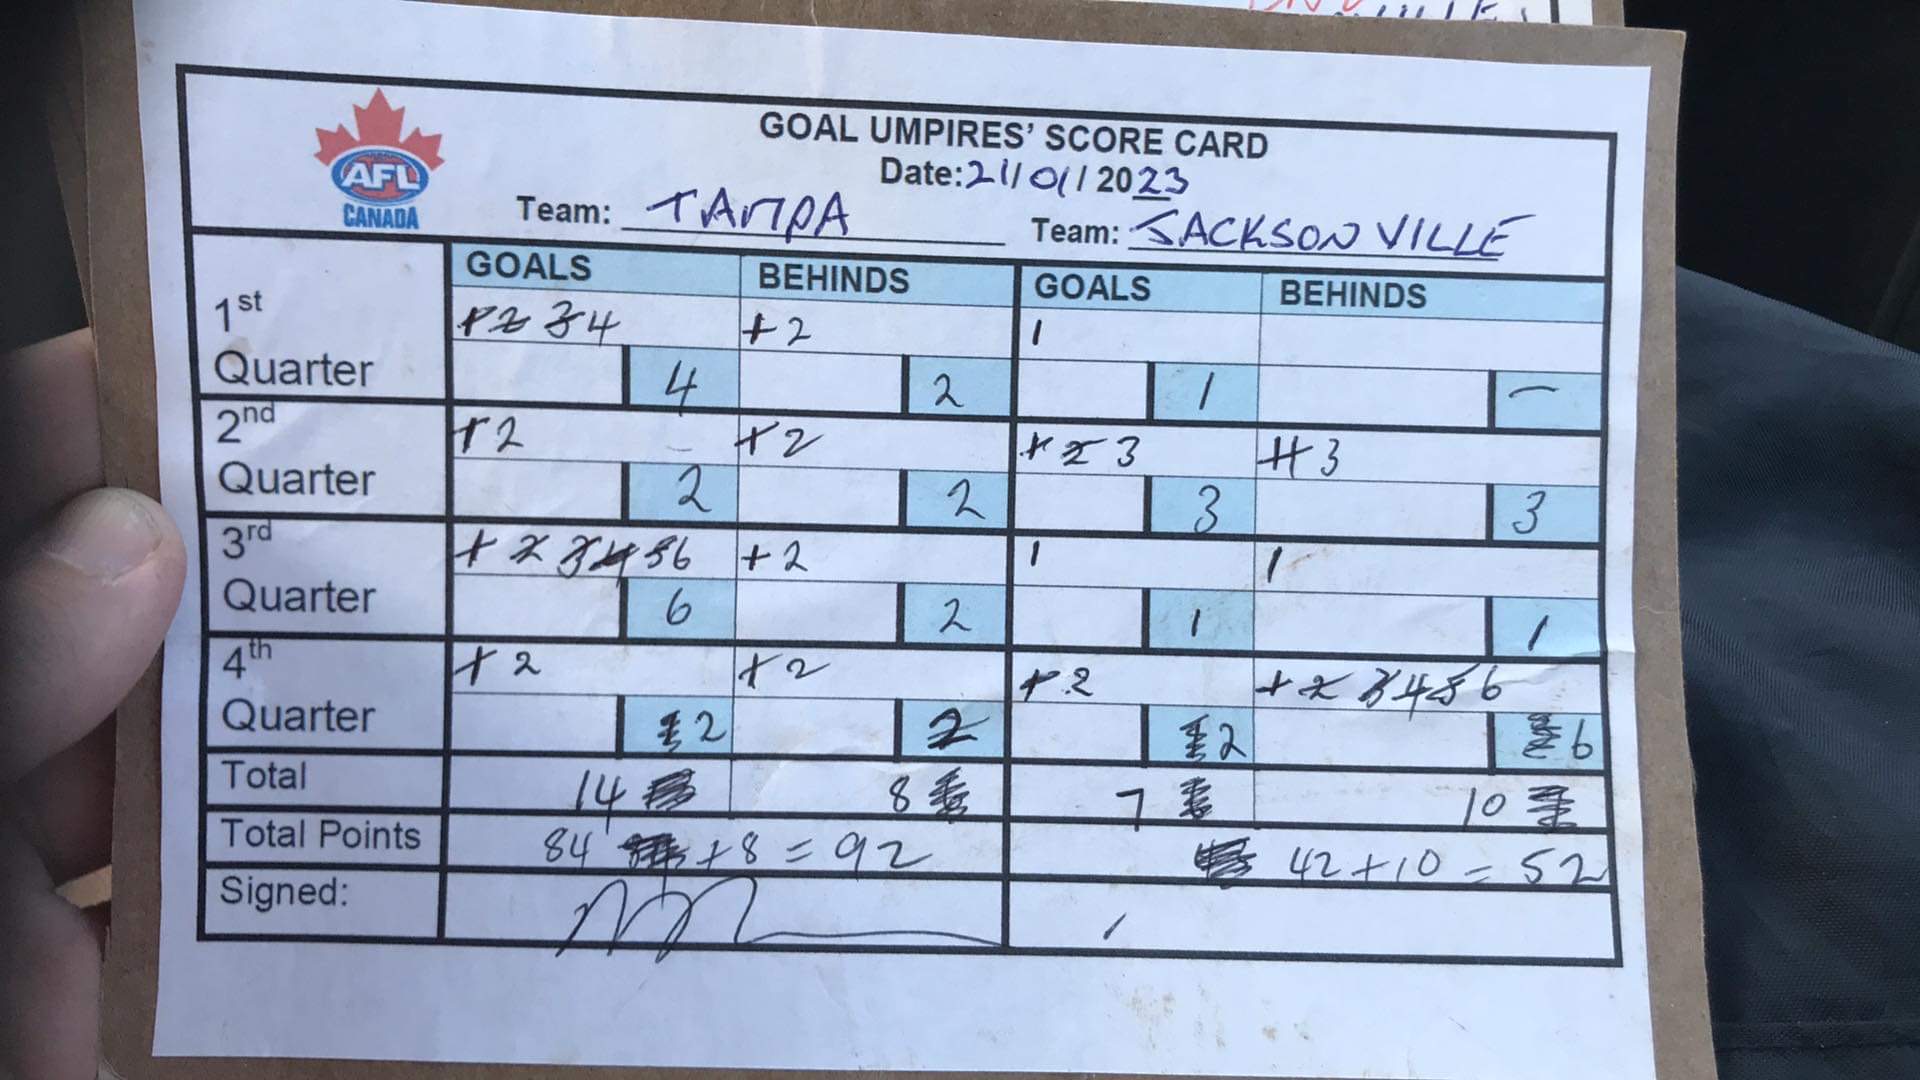 GOAL UMPIRES' SCORE CARD
Date: 21/01/2023
AFL
CANADA
Team: TAMPA Team: JACKSONVILLE
GOALS BEHINDS GOALS BEHINDS
1st Quarter
1 2 3 4 1 2 1
4 2 1 –
2nd Quarter
1 2 1 2 1 2 3 1 3
2 2 3 3
3rd Quarter
1 2 3 4 5 6 1 2 1 1
6 2 1 1
4th Quarter
1 2 1 2 1 2 1 2 3 4 5 6
2 2 2 6
Total 14 8 7 10
Total Points 84 +8 = 92 42+10 = 52
Signed: